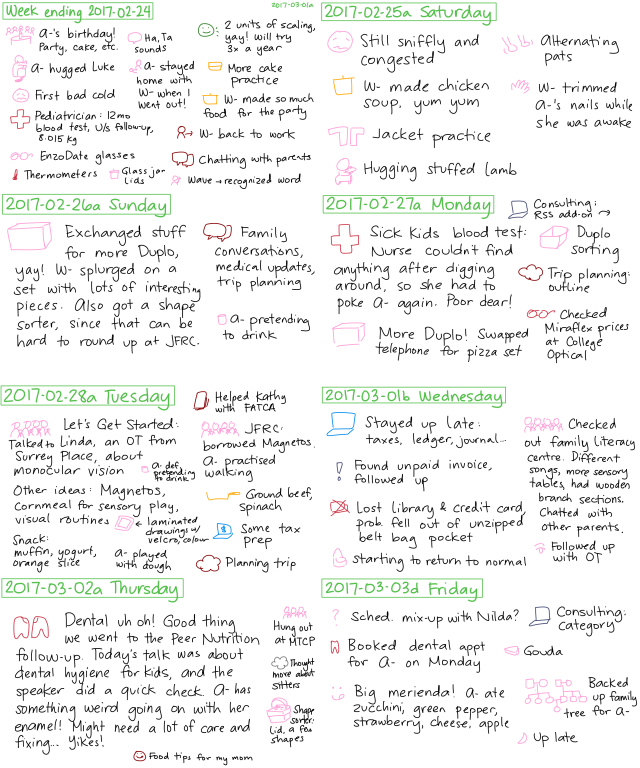 Week ending 2017-02-24
2017-03-01a
A-'s birthday!
Party, cake, etc.
Ha, Ta
sounds
2 units of scaling,
yay! Will try
3x a year
A- hugged Luke
A- stayed
home with
W- when I
went out!
More cake
practice
First bad cold
W- made so much
food for the party
Pediatrician: 12mo
blood test, U/S follow-up,
8.015 kg
W- back to work
EnzoDate glasses
Chatting with parents
Thermometers
Glass jar
lids
Wave → recognized word
2017-02-25a Saturday
Still sniffly and
congested
Alternating
pats
W- made chicken
soup, yum yum
W- trimmed
A-'s nails while
she was awake
Jacket practice
Hugging stuffed lamb
2017-02-26a Sunday
Exchanged stuff
for more Duplo,
yay! W- splurged on a
set with lots of interesting
pieces. Also got a shape
sorter, since that can be
hard to round up at JFRC.
Family
conversations,
medical updates,
trip planning
A- pretending
to drink
2017-02-27a Monday
Consulting:
RSS add-on →
Sick Kids blood test:
Nurse couldn't find
anything after digging
around, so she had to
poke A- again. Poor dear!
Duplo
sorting
Trip planning:
outline
More Duplo! Swapped
telephone for pizza set
Checked
Miraflex prices
at College
Optical
2017-02-28a Tuesday
Helped Kathy
with FATCA
Let's Get Started:
Talked to Linda, an OT from
Surrey Place, about
monocular vision
A- def.
pretending
to drink
JFRC:
borrowed Magnetos.
A- practised
walking
Other ideas: Magnetos,
Cornmeal for sensory play,
visual routines
← laminated
drawings w/
velcro, colour
Ground beef,
spinach
Some tax
prep
Snack:
muffin, yogurt,
orange slice
A- played
with dough
Planning trip
2017-03-01b Wednesday
Stayed up late:
taxes, ledger, journal...
Found unpaid invoice,
followed up
Lost library & credit card,
prob. fell out of unzipped
belt bag pocket
starting to return to normal
Checked
out family literacy
centre. Different
songs, more sensory
tables, had wooden
branch sections.
Chatted with
other parents.
Followed up
with OT
2017-03-02a Thursday
Dental uh oh! Good thing
we went to the Peer Nutrition
follow-up. Today's talk was about
dental hygiene for kids, and the
speaker did a quick check. A- has
something weird going on with her
enamel! Might need a lot of care and
fixing... Yikes!
Hung out
at MTCP
Thought
more about
sitters
Shape
sorter:
lid, a few
shapes
Food tips for my mom
2017-03-03d Friday
? Sched. mix-up with Nilda?
Consulting:
category
Booked dental appt
for A- on Monday
Gouda
Big merienda! A- ate
zucchini, green pepper,
strawberry, cheese, apple
Backed
up family
tree for A-
Up late